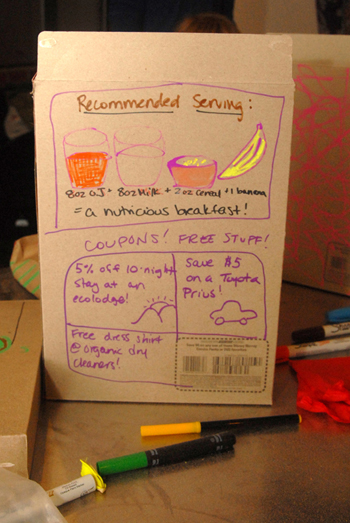 Recommended Serving:
8oz OJ + 8oz Milk + 2oz cereal + 1 banana
= a nutricious breakfast!
COUPONS! FREE STUFF!
5% off 10-night
stay at an
ecolodge!
Save $5
on a Toyota
Prius!
Free dress shirt
@ organic dry
cleaners!